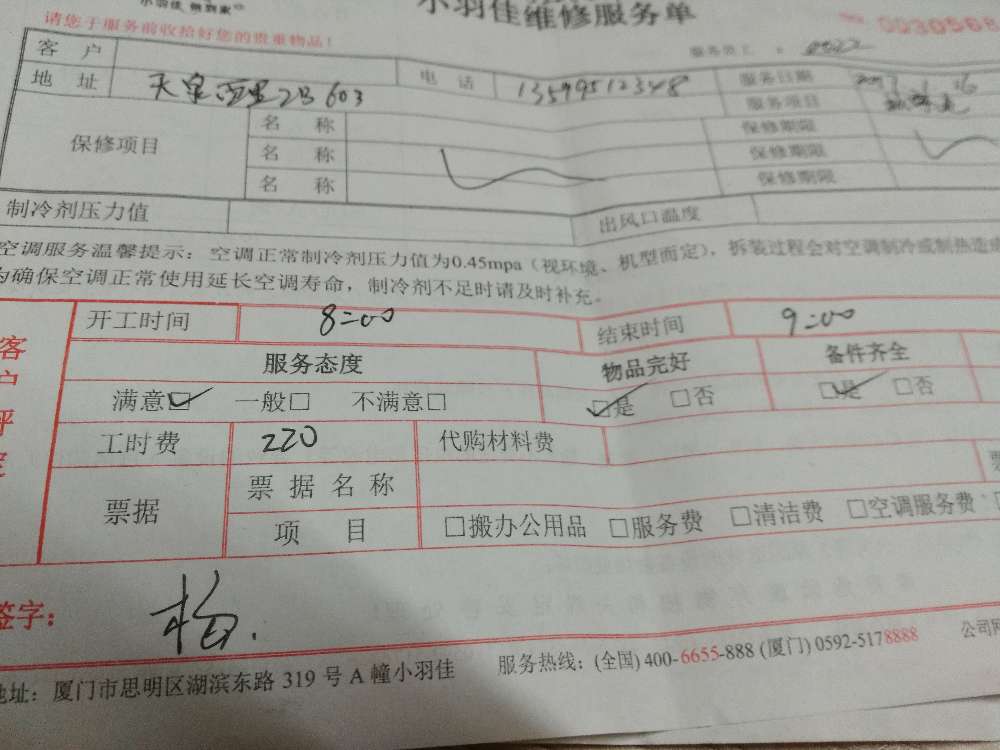 小羽佳维修服务单
请您于服务前收拾好您的贵重物品!
客 户
地 址 天泉西里2B603 电 话 13599512348 服务日期
服务项目
保修项目 名 称 保修期限
名 称 保修期限
名 称 保修期限
制冷剂压力值 出风口温度
空调服务温馨提示:空调正常制冷剂压力值为0.45mpa(视环境、机型而定),拆装过程会对空调制冷或制热造成
为确保空调正常使用延长空调寿命,制冷剂不足时请及时补充。
客户评定
开工时间 8:00 结束时间 9:00
服务态度 物品完好 备件齐全
满意☑ 一般□ 不满意□ ☑是 □否 ☑是 □否
工时费 220 代购材料费
票据 票据名称
项 目 □搬办公用品 □服务费 □清洁费 □空调服务费
签字: 杨.
地址:厦门市思明区湖滨东路 319 号 A 幢小羽佳 服务热线:(全国) 400-6655-888 (厦门) 0592-5178888 公司网